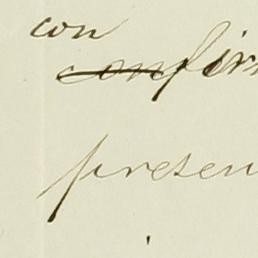 con
confir
presen